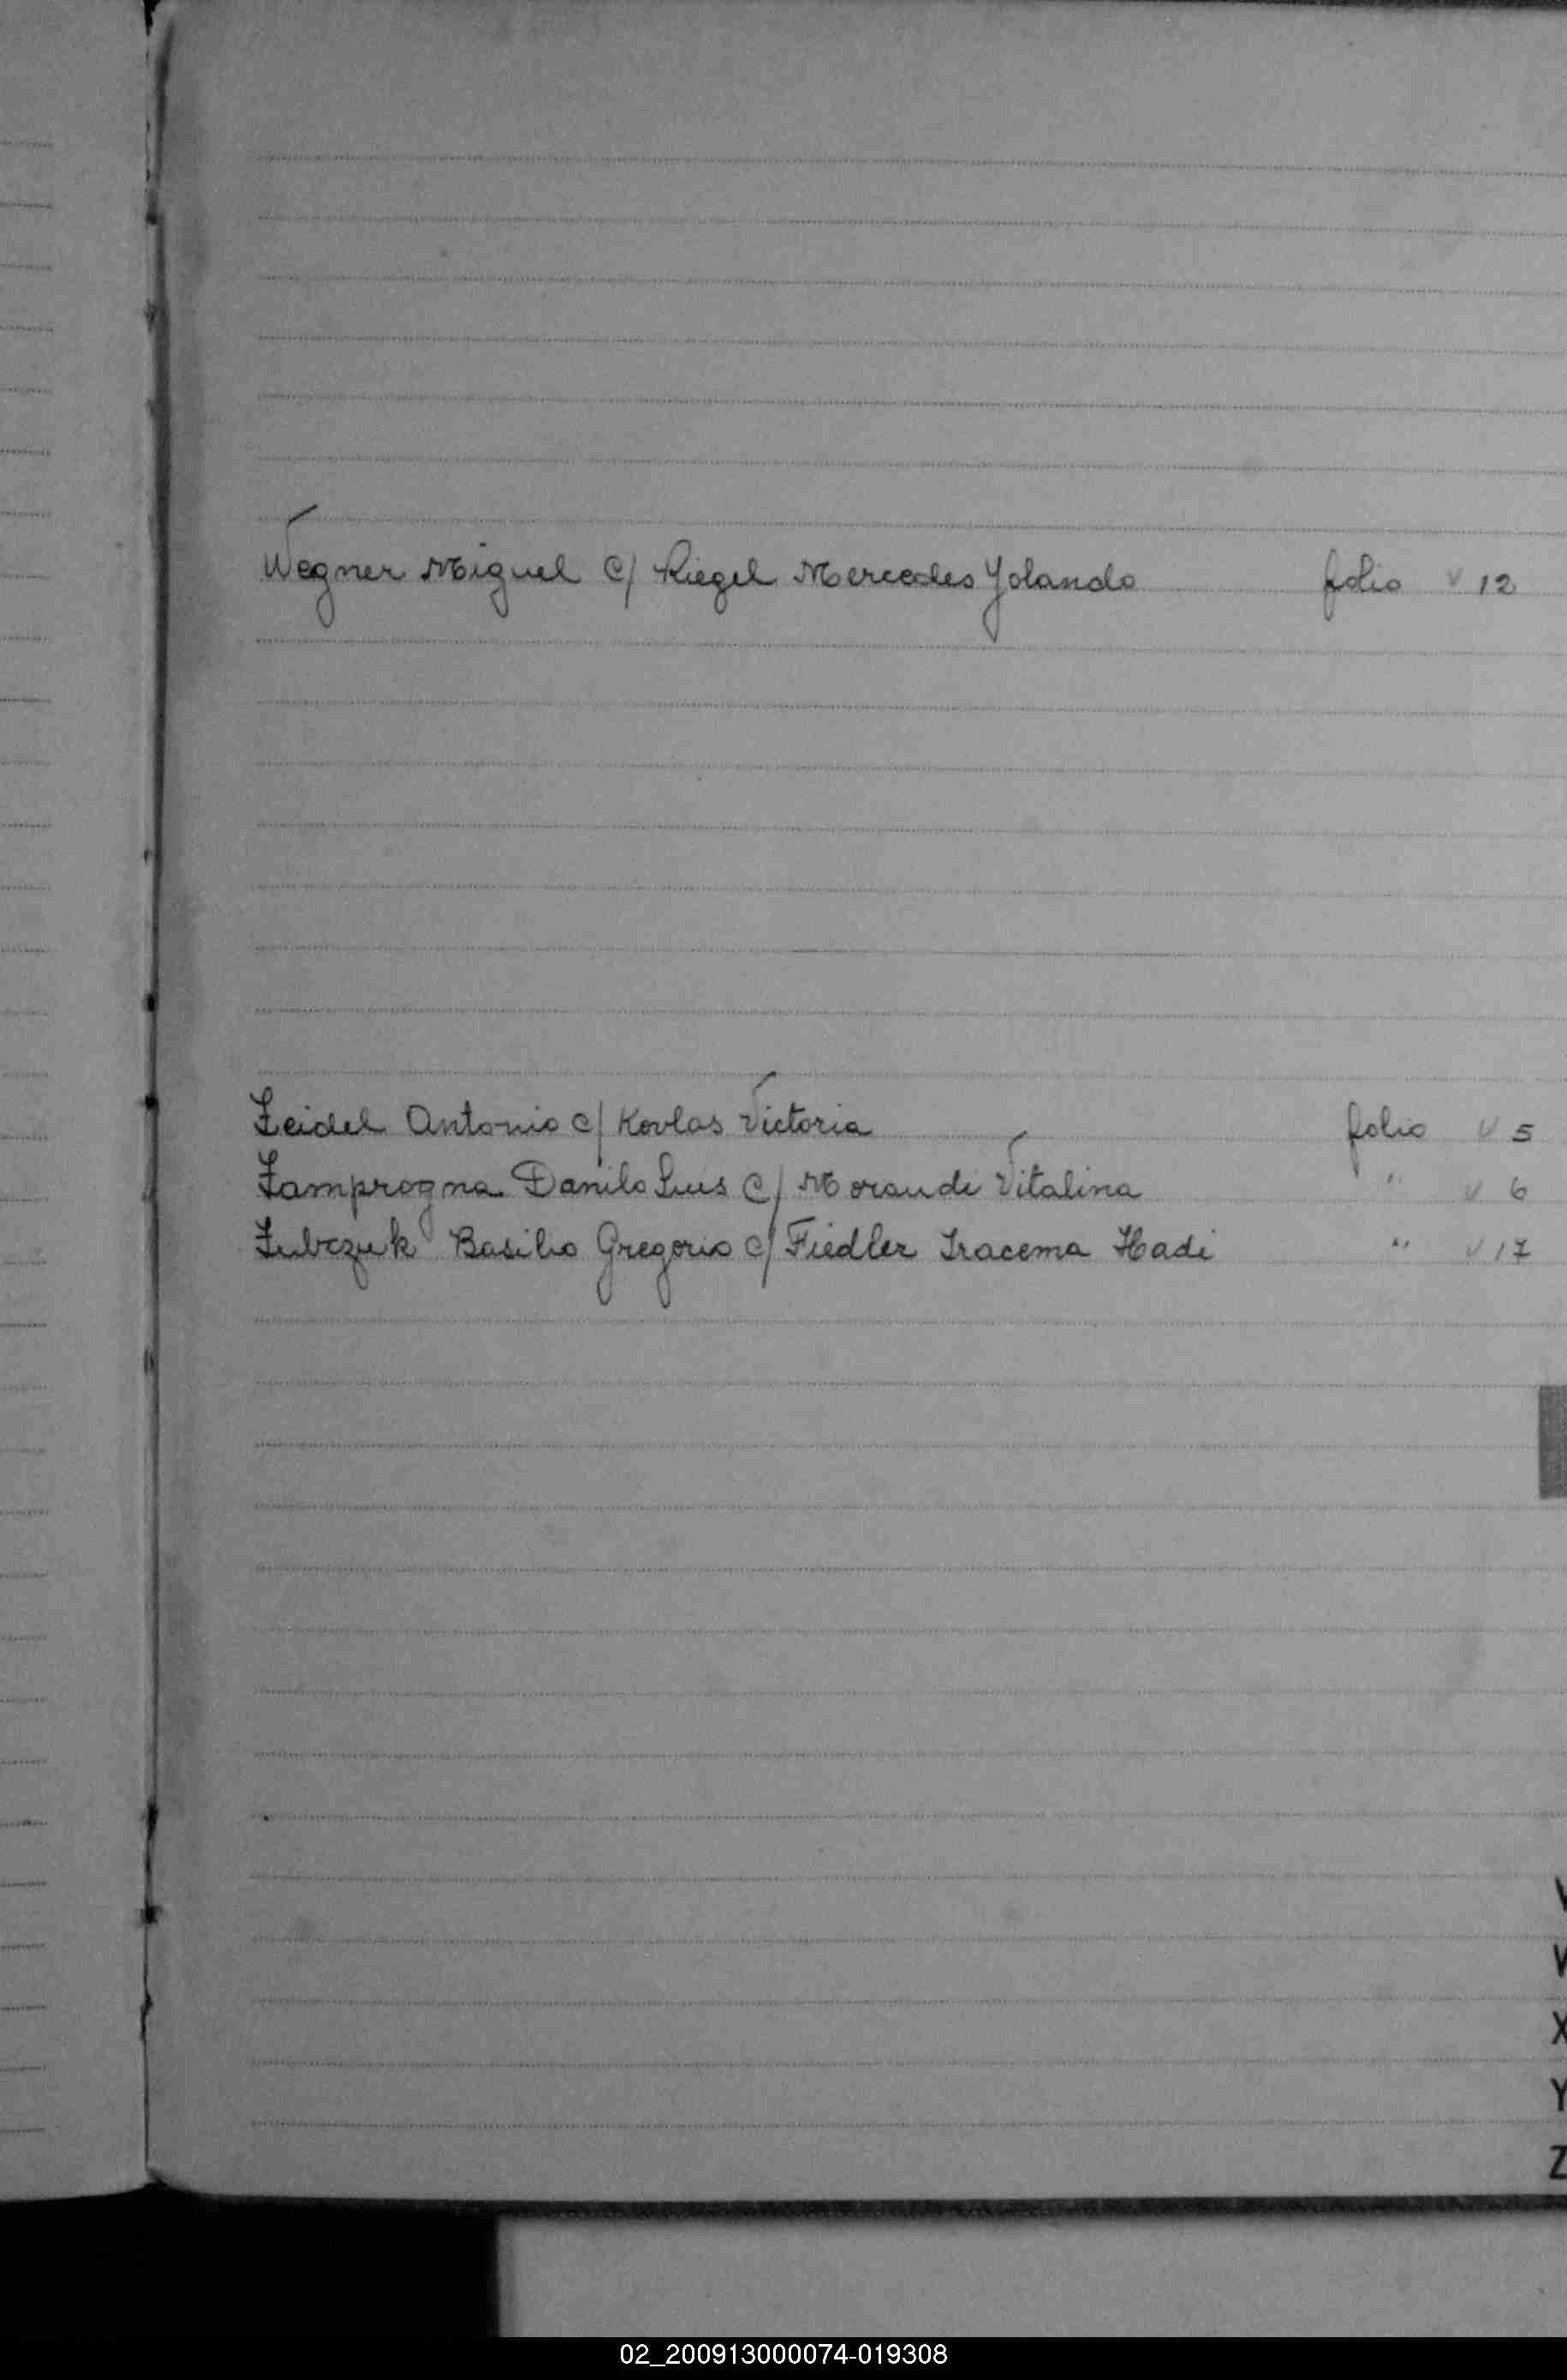 Wegner Miguel c/ Riegel Mercedes Yolanda folio v 12
Zeidel Antonio c/ Kovlas Victoria folio v 5
Zamprogna Danilo Luis c/ Morandi Vitalina " v 6
Zubczuk Basilio Gregorio c/ Fiedler Iracema Hadi " v 17
V
W
X
Y
Z
02_200913000074-019308